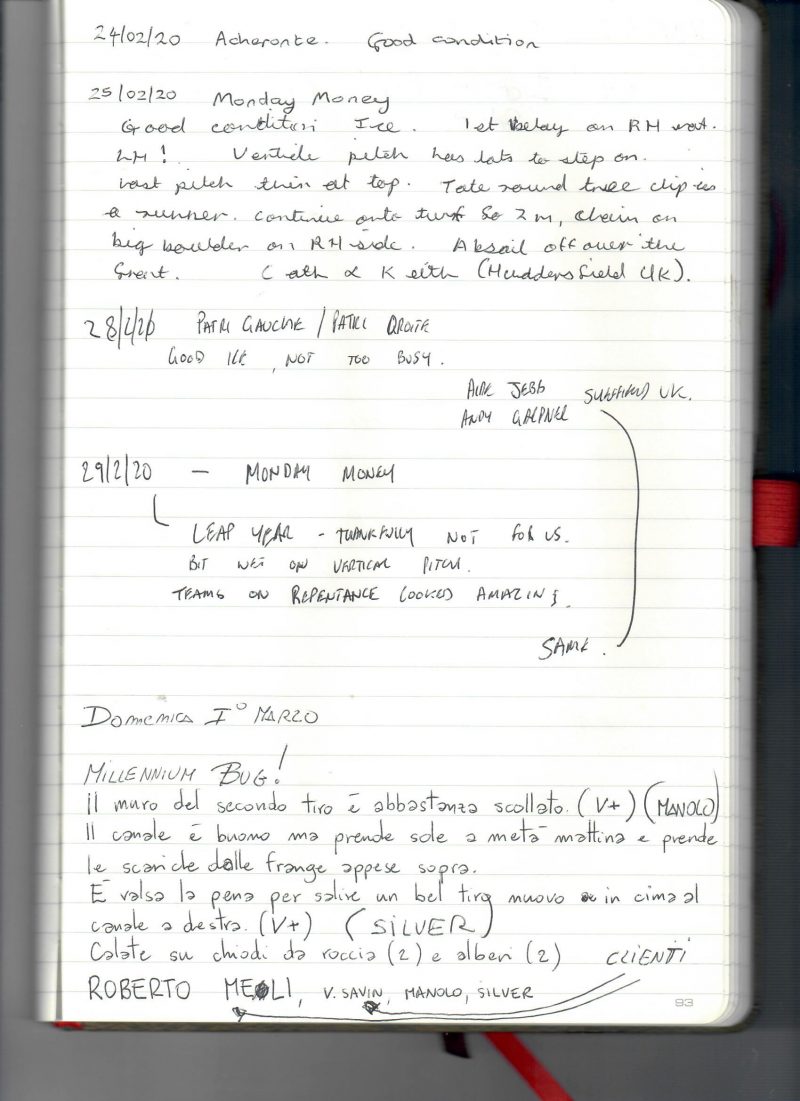 24/02/20 Acheronte. Good condition
25/02/20 Monday Money
Good condition Ice. 1st belay on RH not.
LH! Verticle pitch has lots to step on.
Last pitch thin at top. Take round tree clip as
a runner. Continue onto turf So 2m, chain on
big boulder on RH side. Absail off over the
front. Cath & Keith (Huddersfield UK).
28/2/20 PATRI GAUCHE / PATRI DROITE
GOOD ICE, NOT TOO BUSY.
JEBB SHEFFIELD UK.
ANDY
29/2/20 – MONDAY MONEY
LEAP YEAR - THANKFULLY NOT FOR US.
BIT WET ON VERTICAL PITCH.
TEAMS ON REPENTANCE LOOKED AMAZING.
SAME.
DOMENICA I° MARZO
MILLENNIUM BUG!
Il muro del secondo tiro è abbastanza scollato. (V+) (MANOLO)
Il canale è buono ma prende sole a metà mattina e prende
le scariche dalle frange appese sopra.
È valsa la pena per salire un bel tiro nuovo in cima al
canale a destra. (V+) (SILVER)
Calate su chiodi da roccia (2) e alberi (2) CLIENTI
ROBERTO MEOLI, V. SAVIN, MANOLO, SILVER
93